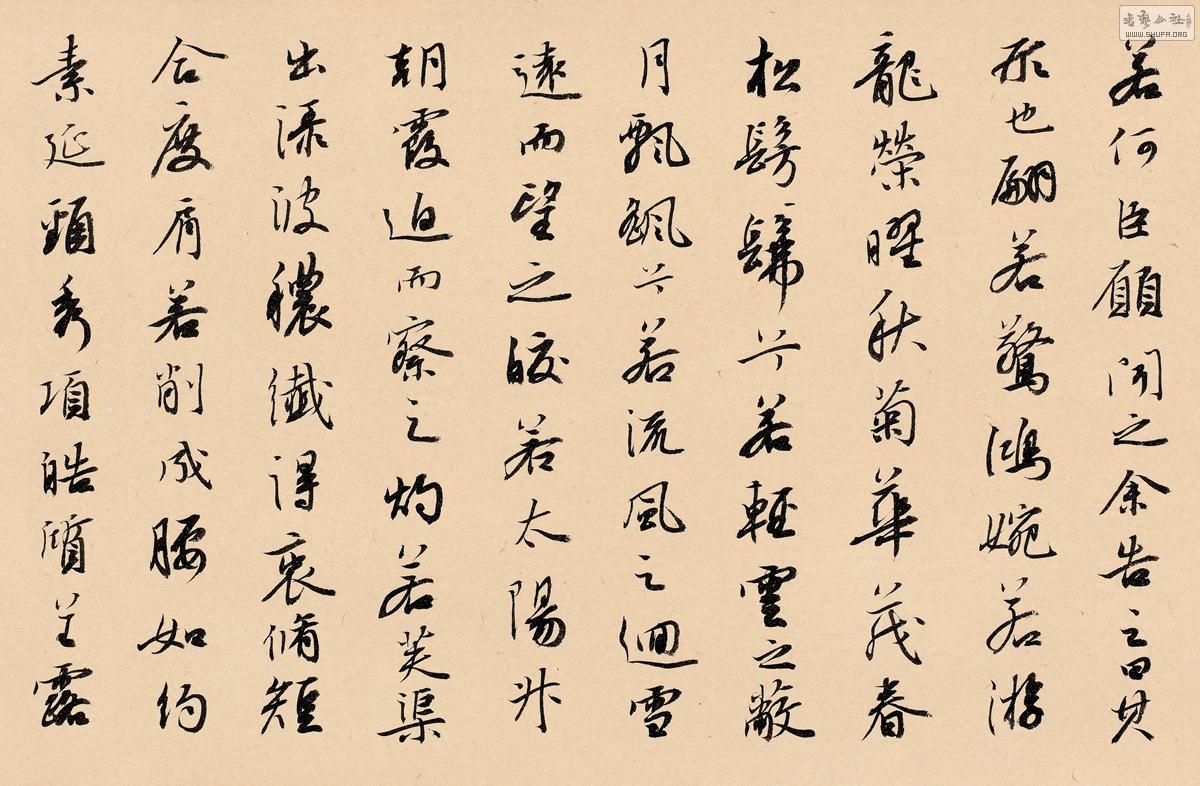 若何臣願聞之余告之曰其
形也翩若驚鴻婉若游
龍榮曜秋菊華茂春
松髣髴兮若輕雲之蔽
月飄颻兮若流風之迴雪
遠而望之皎若太陽升
朝霞迫而察之灼若芙渠
出淥波穠纖得衷脩短
合度肩若削成腰如約
素延頸秀項皓質呈露
書藝公社
WWW.SHUFA.ORG